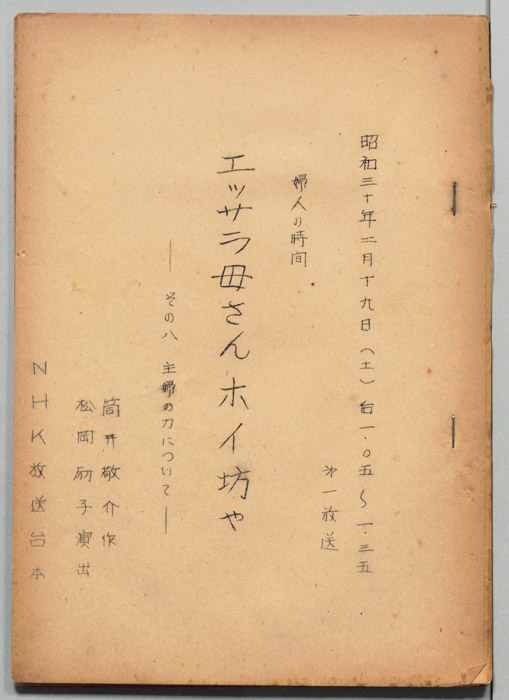 昭和三十年二月十九日（土）后一・〇五～一・三五
第一放送
婦人の時間
エッサラ母さんホイ坊や
――その八 主婦の力について――
筒井敬介作
松岡励子演出
NHK放送台本